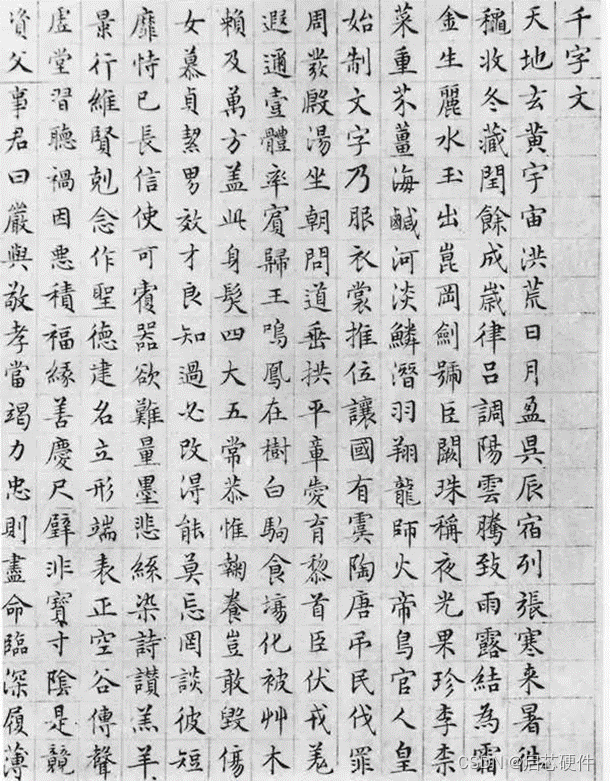 千字文
天地玄黄宇宙洪荒日月盈昃辰宿列張寒来暑往
穐收冬藏閏餘成嵗律吕調陽雲騰致雨露結為霜
金生麗水玉出崑岡劍號臣闕珠稱夜光果珍李柰
菜重芥薑海鹹河淡鱗潛羽翔龍師火帝鳥官人皇
始制文字乃服衣裳推位讓國有虞陶唐吊民伐罪
周發殷湯坐朝問道垂拱平章愛育黎首臣伏戎羌
遐邇壹體率賓歸王鳴鳳在樹白駒食場化被艸木
賴及萬方盖此身髮四大五常恭惟鞠養豈敢毀傷
女慕貞潔男效才良知過必改得能莫忘罔談彼短
靡恃己長信使可覆器欲難量墨悲絲染詩讚羔羊
景行維賢剋念作聖德建名立形端表正空谷傳聲
虛堂習聽禍因惡積福緣善慶尺璧非寶寸陰是競
資父事君曰嚴與敬孝當竭力忠則盡命臨深履薄
CSDN @启芯硬件